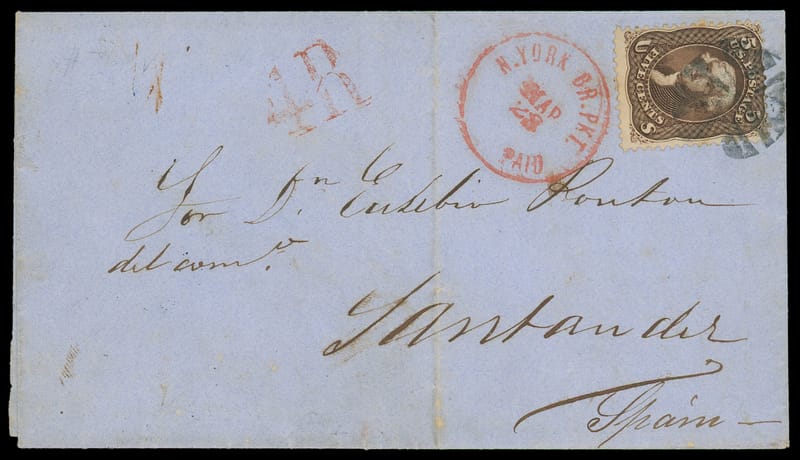 4R
N. YORK BR. PKT.
MAR
28
PAID
U.S. POSTAGE
5 5
U S
FIVE CENTS
Sor Dn Eusebio Ponton
del como.
Santander
Spain